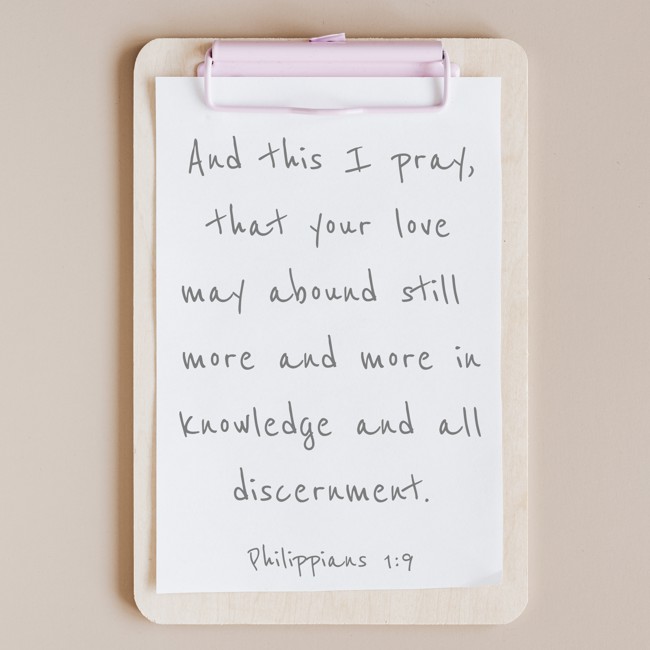 And this I pray,
that your love
may abound still
more and more in
knowledge and all
discernment.
Philippians 1:9